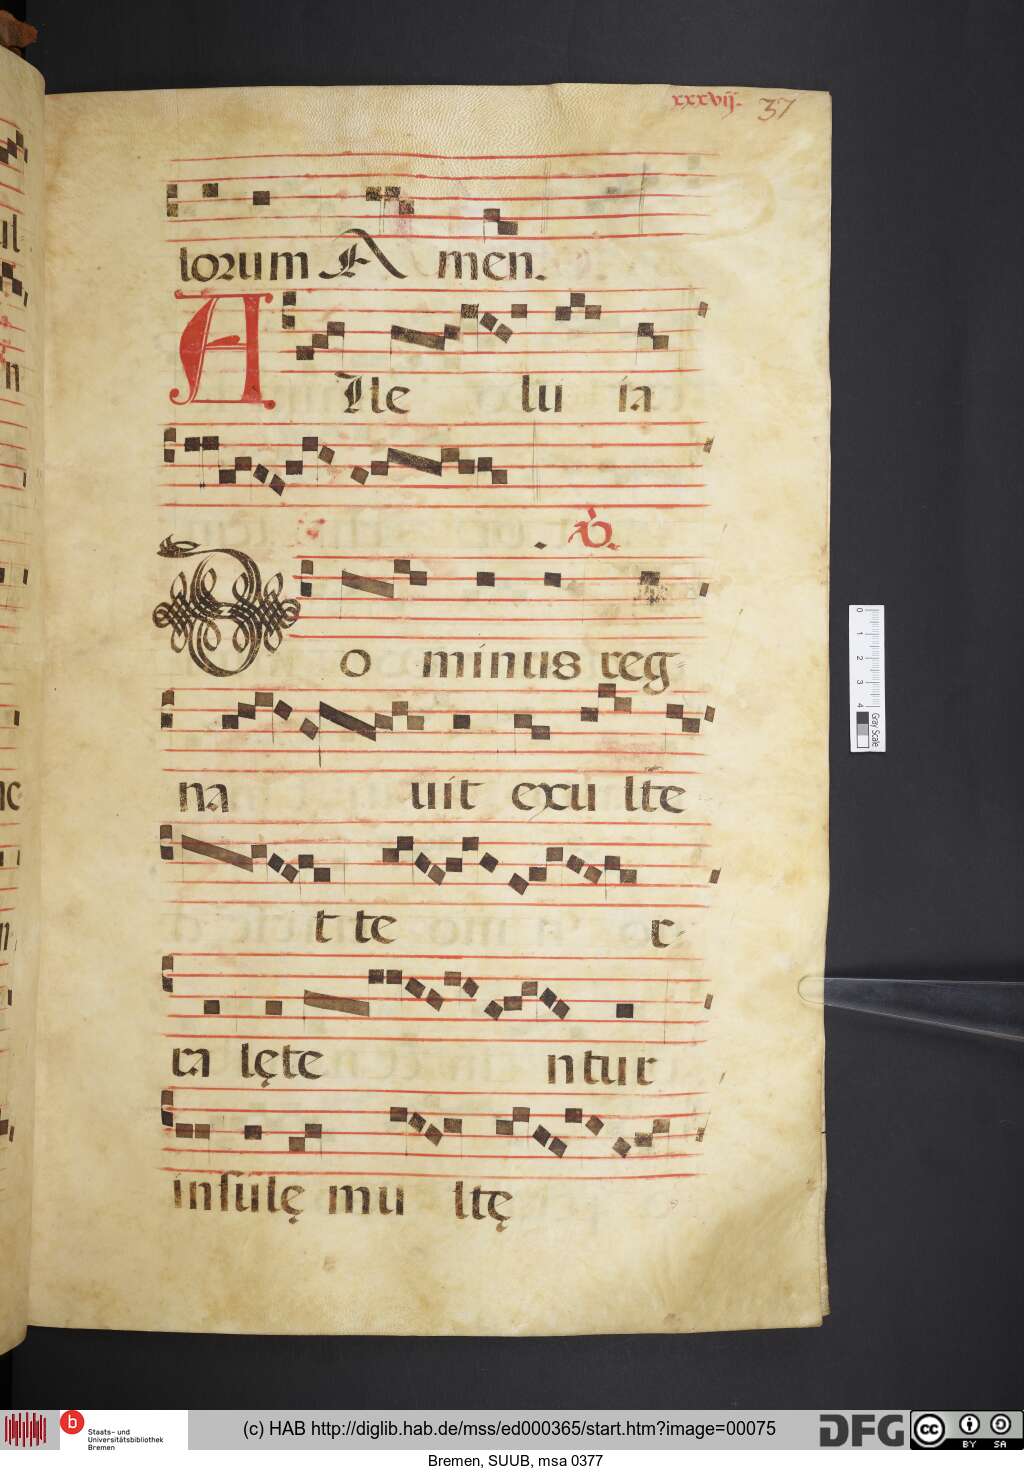 xxxvij. 37
lorum A men.
A lle lu ia
. ℣.
D o minus reg
na uit exu lte
t te r
ra lęte ntur
insulę mu ltę
0 1 2 3 4 Gray Scale
b Staats- und Universitätsbibliothek Bremen
(c) HAB http://diglib.hab.de/mss/ed000365/start.htm?image=00075
DFG cc BY SA
Bremen, SUUB, msa 0377